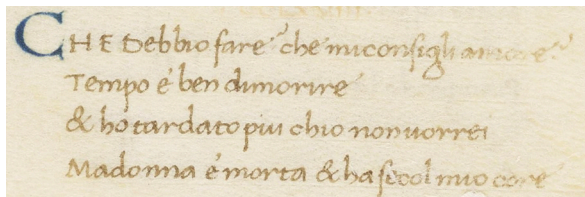 CHE Debbio fare? che mi consigli amore?
Tempo é ben di morire
& ho tardato piu chio non uorrei
Madonna é morta & ha seco ol mio core